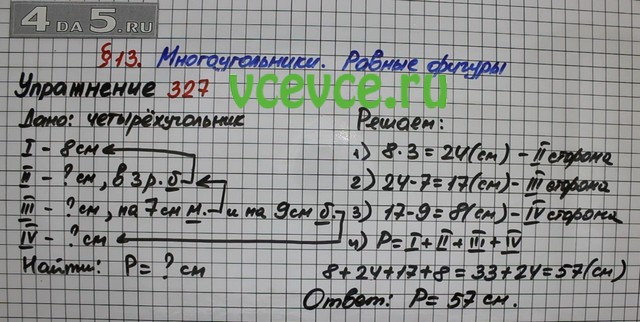 4DA5.RU
§13. Многоугольники. Равные фигуры
Упражнение 327
vcevce.ru
Дано: четырёхугольник
I - 8 см
II - ? см, в 3 р. б.
III - ? см, на 7 см м. и на 9 см б.
IV - ? см
Найти: P = ? см
Решаем:
1) 8·3=24(см) - II сторона
2) 24-7=17(см) - III сторона
3) 17-9=8(см) - IV сторона
4) P=I+II+III+IV
8+24+17+8=33+24=57(см)
Ответ: P=57 см.